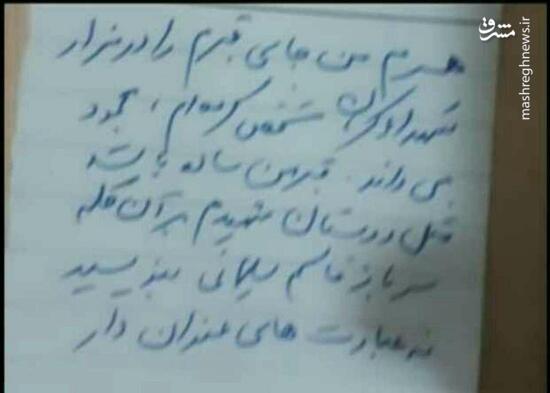 مشرق
mashreghnews.ir
همسرم من جای قبرم را در مزار
شهداء کرمان مشخص کرده‌ام، محمود
می داند. قبر من ساده باشد
مثل دوستان شهیدم بر آن کلمه
سرباز قاسم سلیمانی بنویسید
نه عبارت های عنوان دار